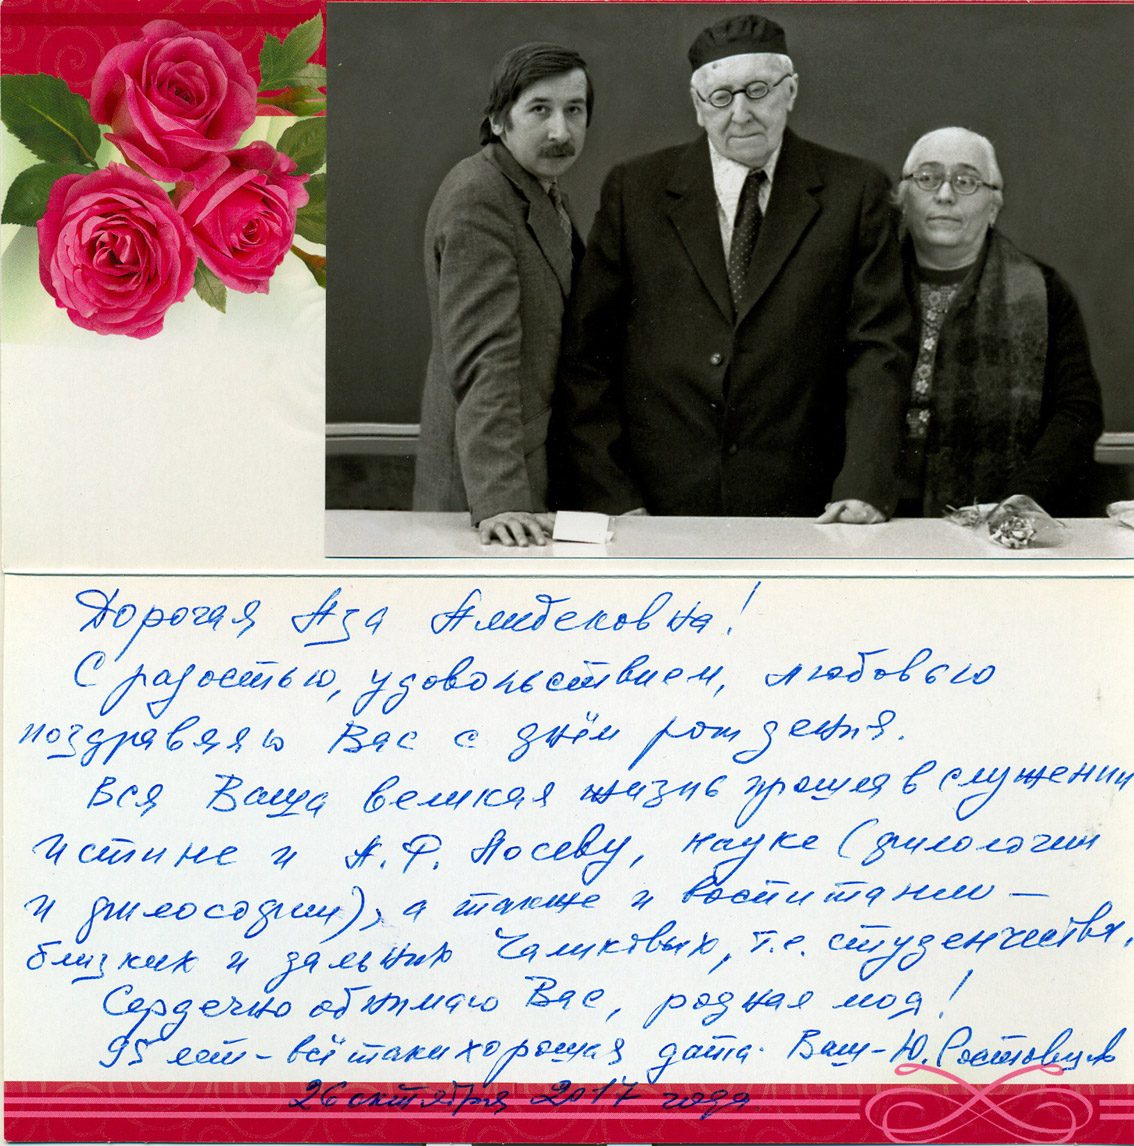 Дорогая Аза Алибековна!
С радостью, удовольствием, любовью
поздравляю Вас с днём рождения.
Вся Ваша великая жизнь прошла в служении
Истине и А.Ф. Лосеву, науке (филологии
и философии), а также и воспитании —
близких и дальних, т.е. студенчества.
Сердечно обнимаю Вас, родная моя!
95 лет - всё таки хорошая дата. Ваш - Ю. Ростовцев
26 октября 2017 года